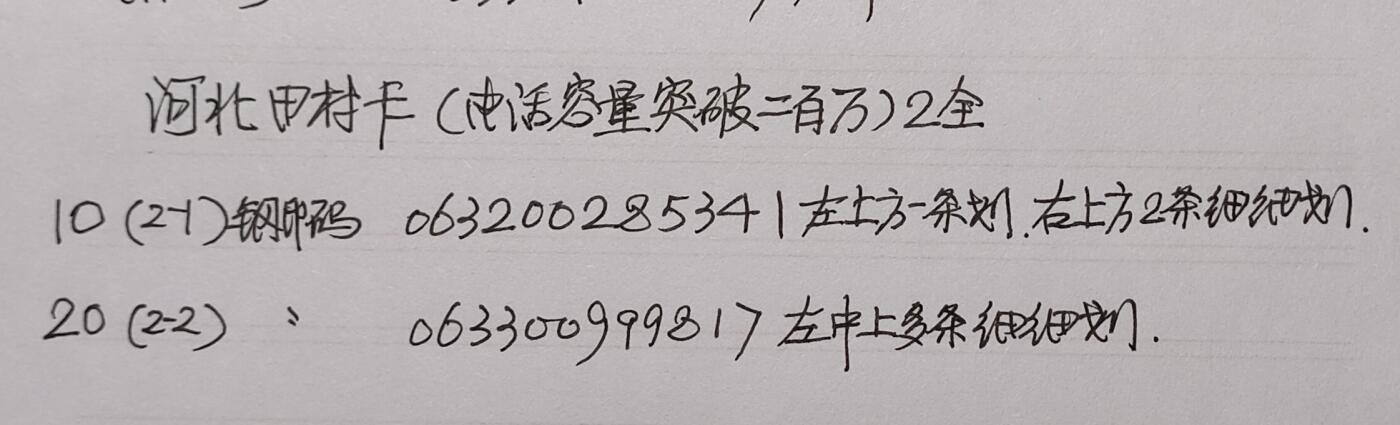 河北田村卡(电话容量突破二百万)2全
10(2-1)钢印码 063200285341左上方一条划.右上方2条细细划.
20(2-2) 〃 063300999817左中上多条细细划.